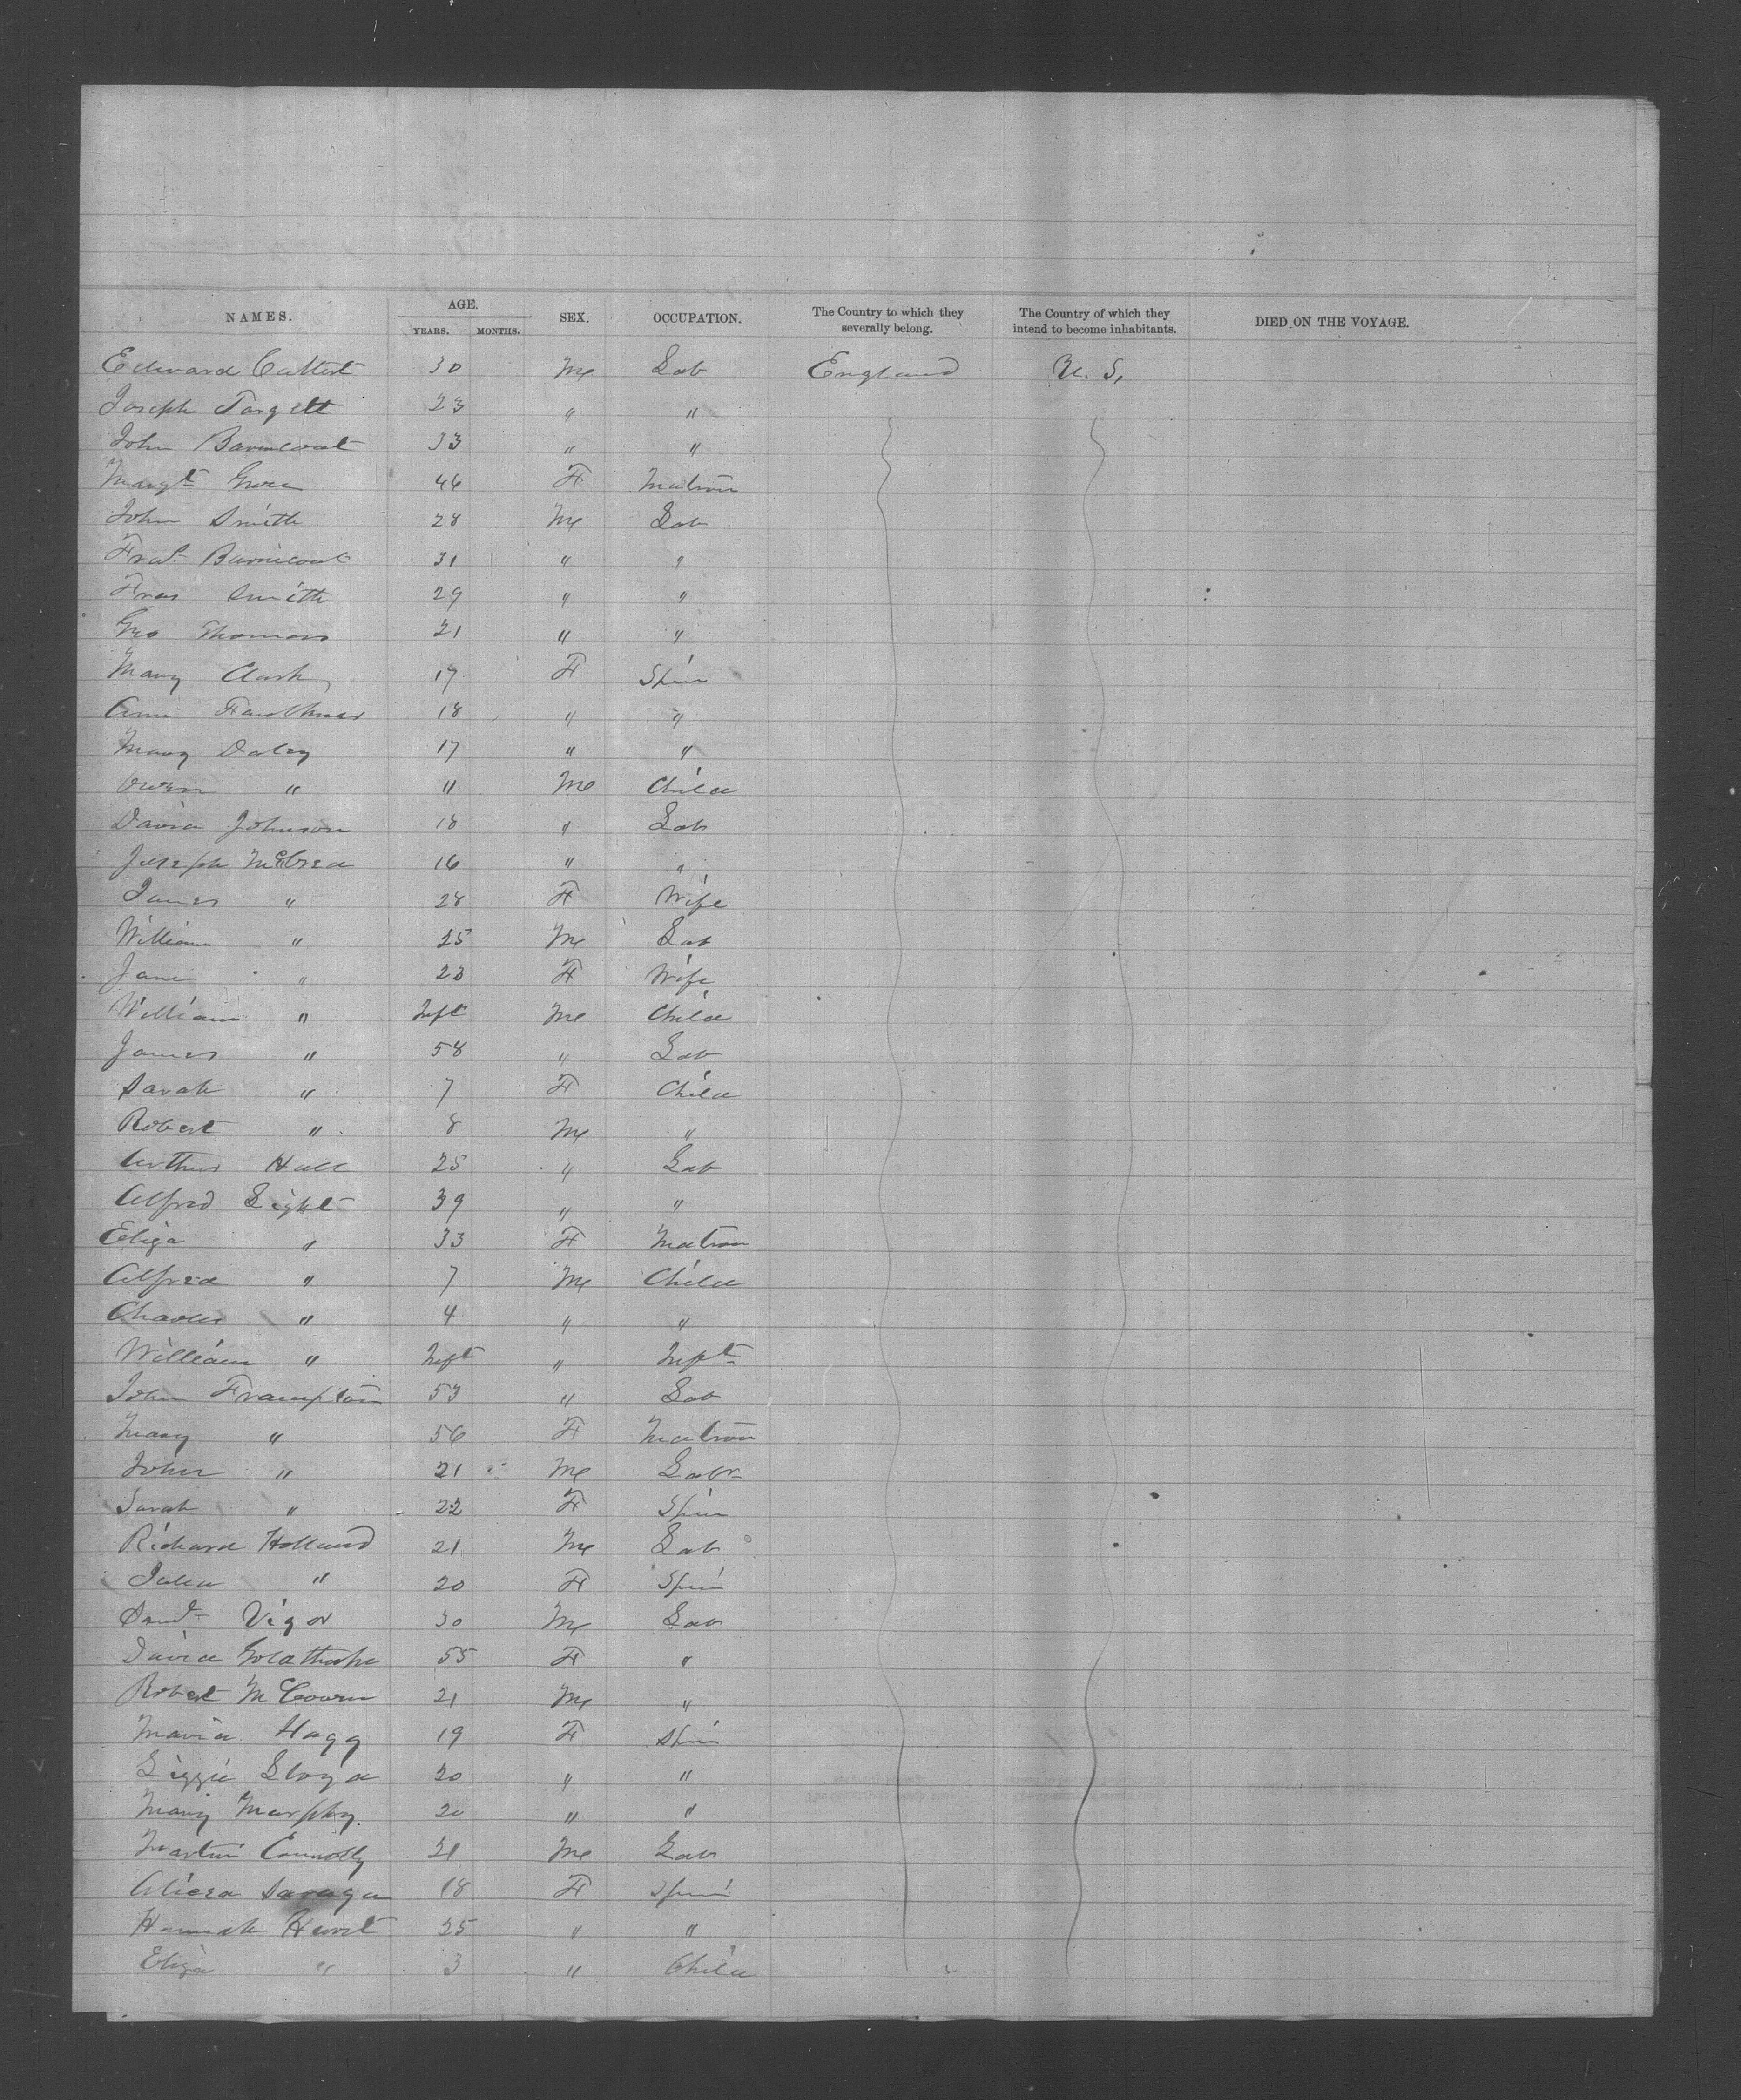 NAMES. AGE. SEX. OCCUPATION. The Country to which they severally belong. The Country of which they intend to become inhabitants. DIED ON THE VOYAGE.
YEARS. MONTHS.
Edward 30 M Lab England U. S.
Joseph Targett 23 " "
John Barnicoat 33 " "
Margt 46 F Matron
John Smith 28 M Lab
Barnicoat 31 " "
Fras Smith 29 " "
Geo Thomas 21 " "
Mary Clark 17 F Spin
Ann 18 " "
Mary Daley 17 " "
Owen " 11 M Child
David Johnson 18 " Lab
Joseph McCrea 16 " "
James " 28 F Wife
William " 25 M Lab
Jane " 23 F Wife
William " Inft M Child
James " 58 " Lab
Sarah " 7 F Child
Robert " 8 M "
Arthur Hall 25 " Lab
Alfred Light 39 " "
Eliza " 33 F Matron
Alfred " 7 M Child
Charles " 4 " "
William " Inft " Inft
John Frampton 53 " Lab
Mary " 56 F Matron
John " 21 M Labr
Sarah " 22 F Spin
Richard Holland 21 M Lab
Julia " 20 F Spin
Saml Vigor 30 M Lab
David Golathorpe 55 F "
Robert McCowen 21 M "
Maria Hagg 19 F Spin
Lizzie Lloyd 20 " "
Mary Murphy 20 " "
Martin Connolly 21 M Lab
18 F Spin
Hannah Hurst 25 " "
Eliza " 3 " Child